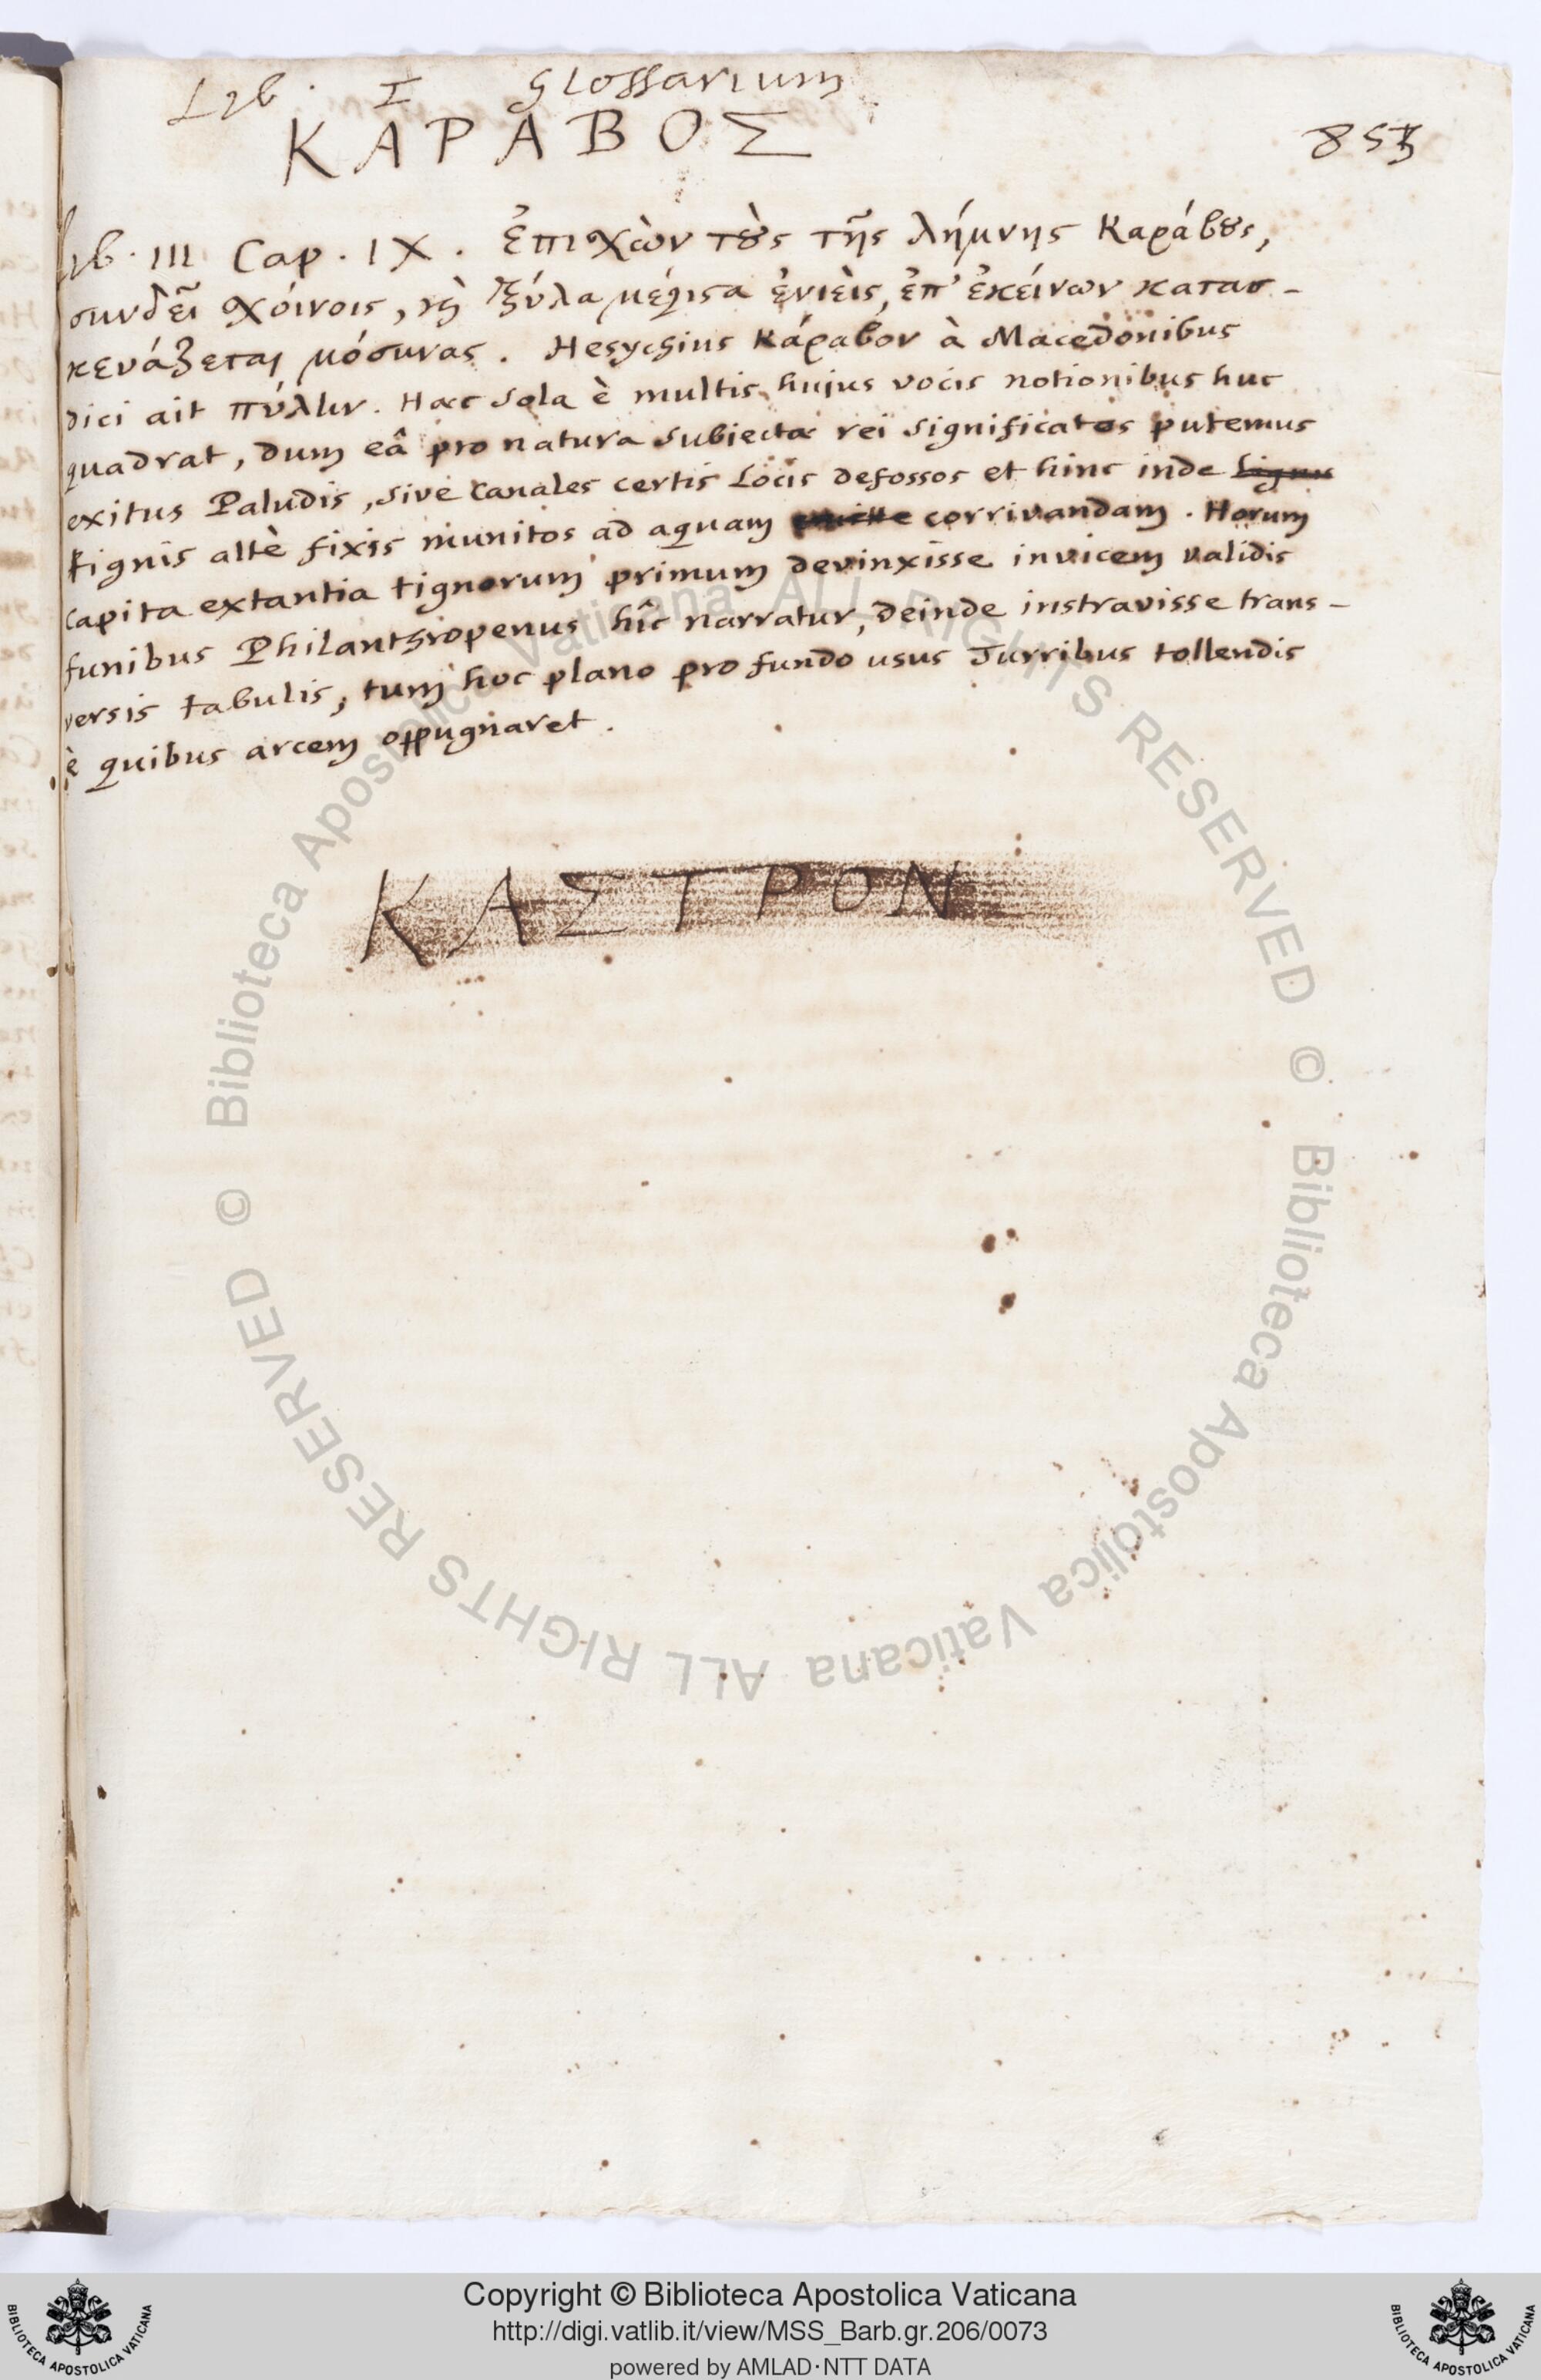 Lib. I Glossarium
ΚΑΡΑΒΟΣ
853
Lib. III Cap. IX. ἐπιχὼν τοὺς τῆς λήμνης Καράβους,
συνδεῖ σχόινοις, καὶ ξύλα μέγιστα ἐνιεὶς, ἐπ' ἐκείνων κατασ-
κευάζεται μόσυνας. Hesychius κάραβον à Macedonibus
dici ait πύλην. Haec sola è multis hujus vocis notionibus huc
quadrat, dum eâ pro natura subiectae rei significatos putemus
exitus Paludis, sive canales certis Locis defossos et hinc inde
tignis altè fixis munitos ad aquam corrivandam. Horum
capita extantia tignorum primum devinxisse invicem validis
funibus Philanthropenus hîc narratur, deinde instravisse trans-
versis tabulis, tum hoc plano pro fundo usus Turribus tollendis
è quibus arcem oppugnaret.
ΚΑΣΤΡΟΝ
© Biblioteca Apostolica Vaticana ALL RIGHTS RESERVED
© Biblioteca Apostolica Vaticana ALL RIGHTS RESERVED
Copyright © Biblioteca Apostolica Vaticana
http://digi.vatlib.it/view/MSS_Barb.gr.206/0073
powered by AMLAD·NTT DATA
BIBLIOTECA APOSTOLICA VATICANA
BIBLIOTECA APOSTOLICA VATICANA